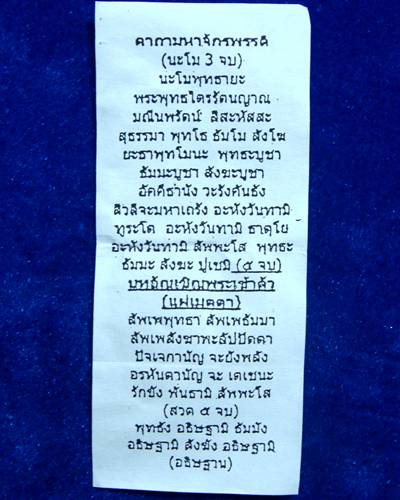 คาถามหาจักรพรรดิ
(นะโม 3 จบ)
นะโมพุทธายะ
พระพุทธไตรรัตนญาณ
มณีนพรัตน์ สีสะหัสสะ
สุธรรมา พุทโธ ธัมโม สังโฆ
ยะธาพุทโมนะ พุทธะบูชา
ธัมมะบูชา สังฆะบูชา
อัคคีธานัง วะรังคันธัง
สิวลีจะมหาเถรัง อะหังวันทามิ
ทูระโต อะหังวันทามิ ธาตุโย
อะหังวันทามิ สัพพะโส พุทธะ
ธัมมะ สังฆะ ปูเชมิ (๕ จบ)
บทอัญเชิญพระเข้าตัว
(แผ่เมตตา)
สัพเพพุทธา สัพเพธัมมา
สัพเพสังฆาพะลัปปัตตา
ปัจเจกานัญ จะยังพลัง
อรหันตานัญ จะ เตเชนะ
รักขัง พันธามิ สัพพะโส
(สวด ๕ จบ)
พุทธัง อธิษฐามิ ธัมมัง
อธิษฐามิ สังฆัง อธิษฐามิ
(อธิษฐาน)